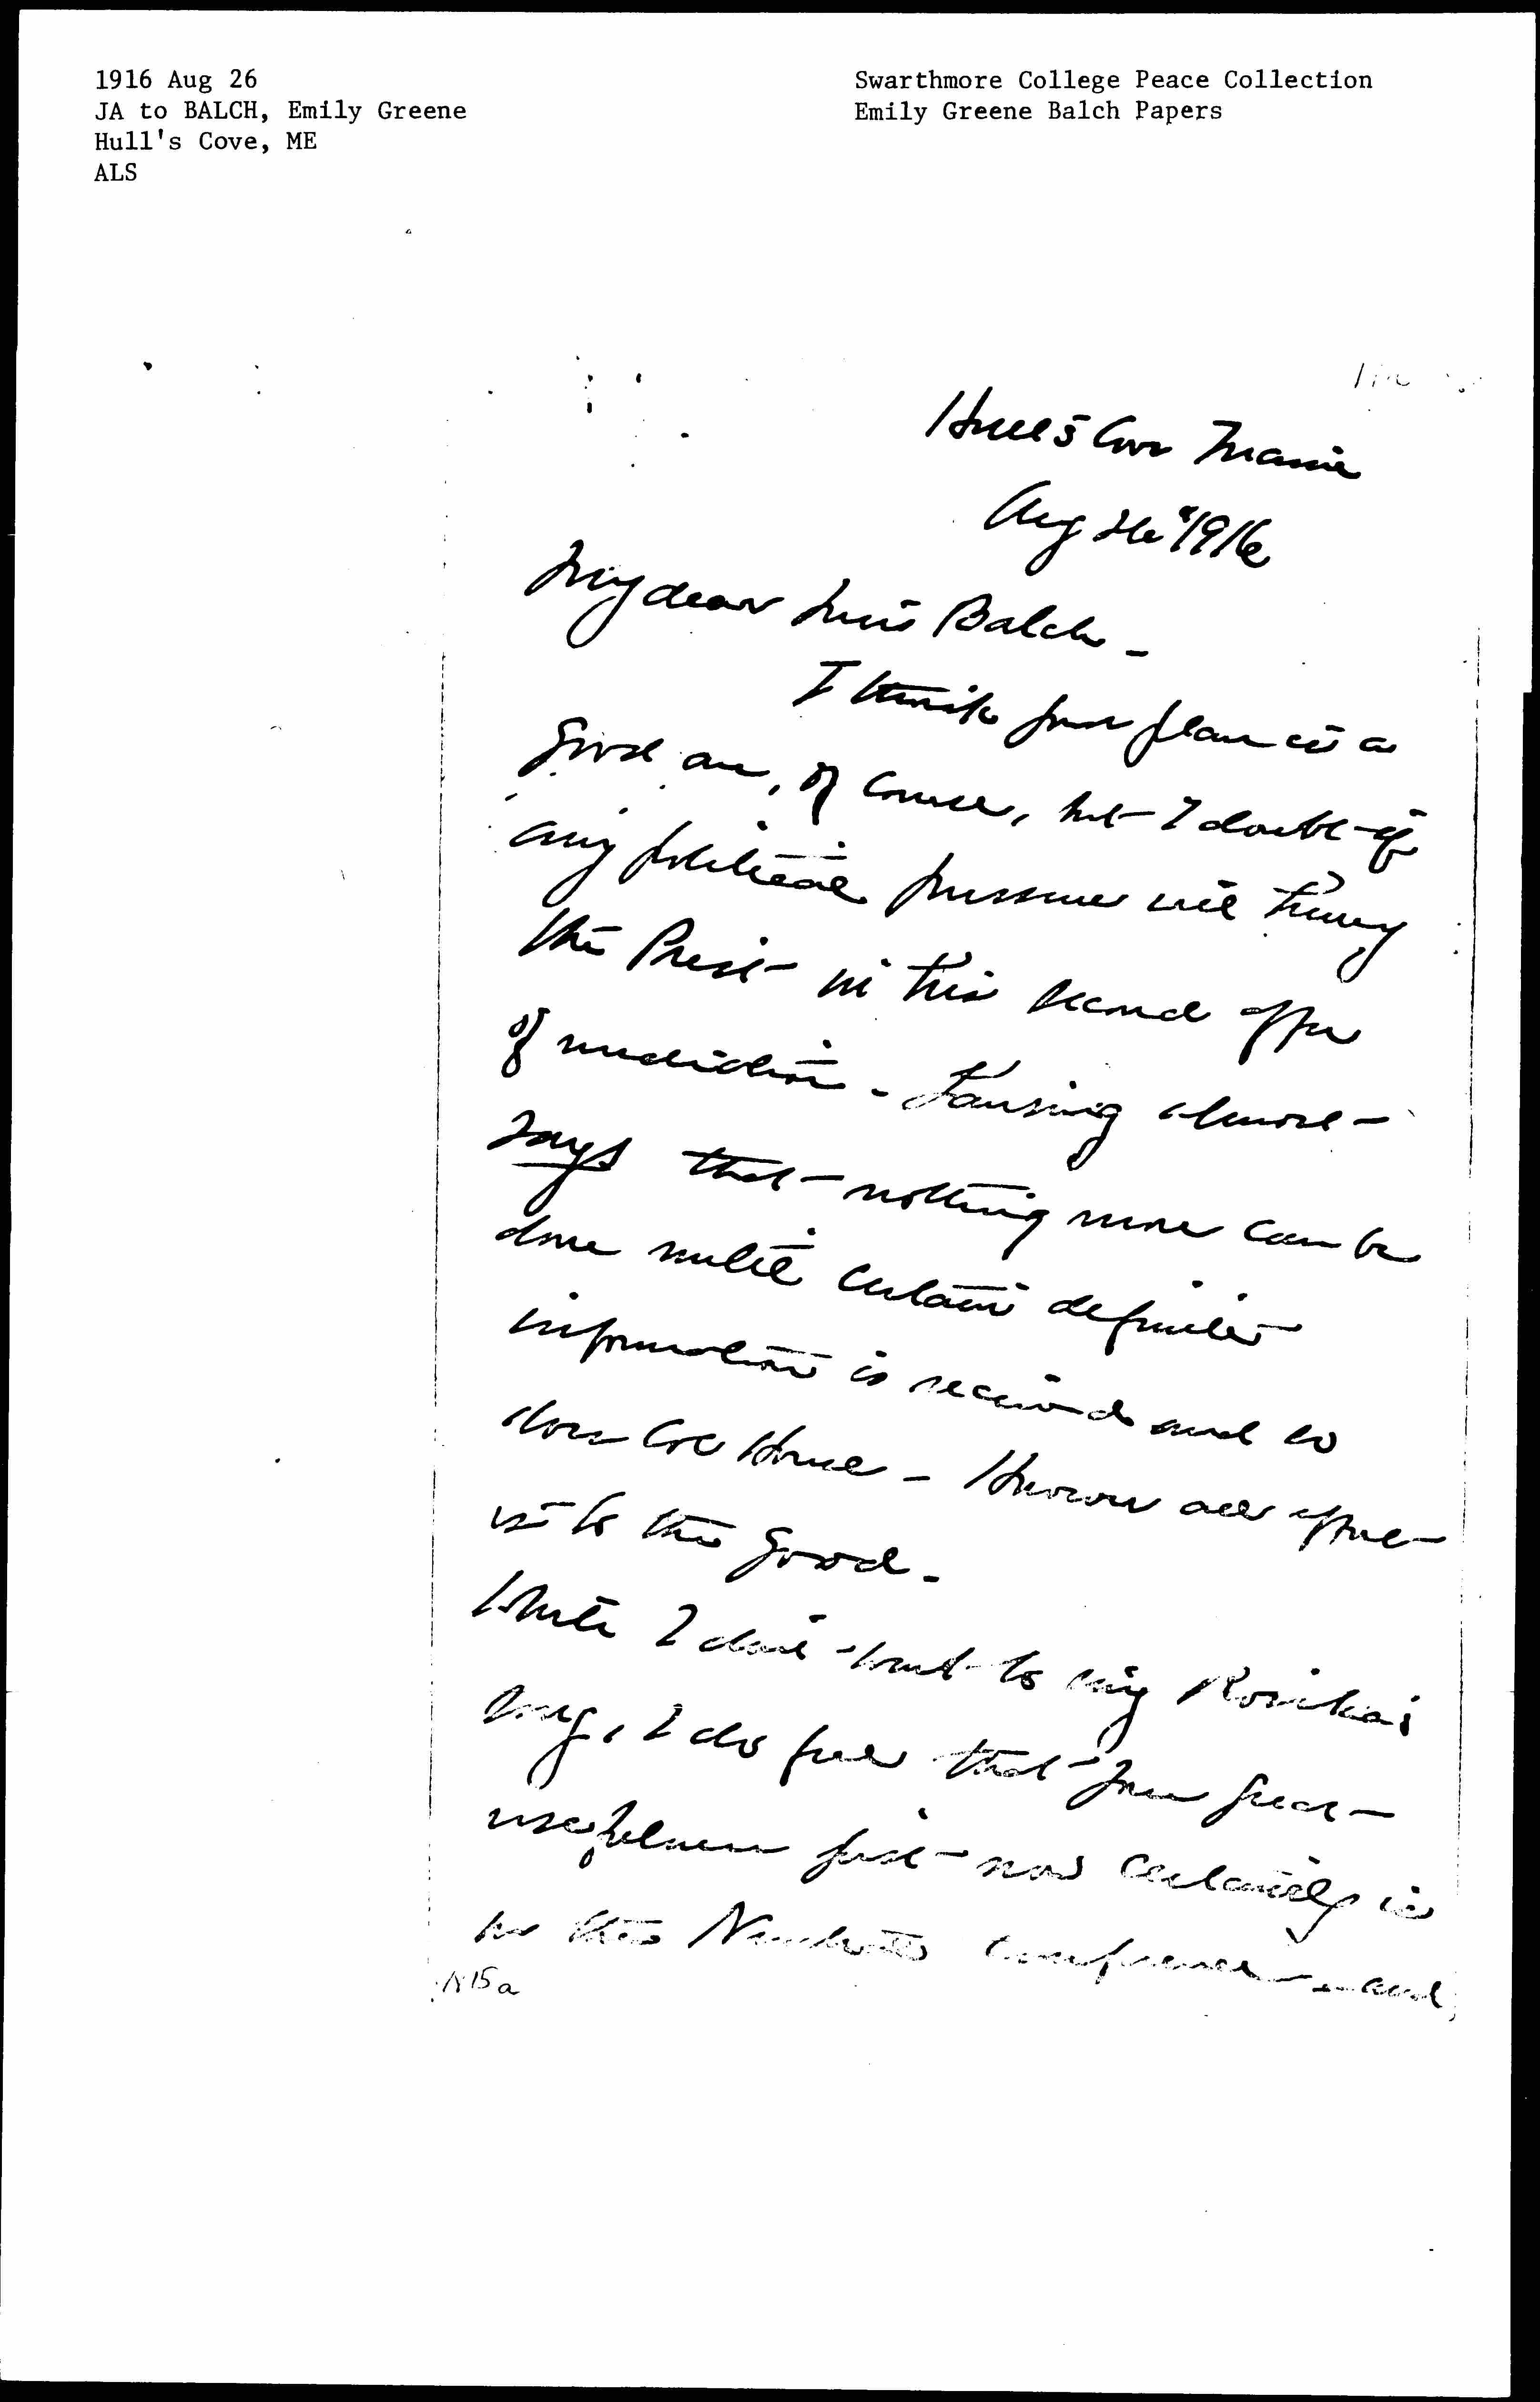 1916 Aug 26
JA to BALCH, Emily Greene
Hull's Cove, ME
ALS
Swarthmore College Peace Collection
Emily Greene Balch Papers
Hull's Cove Maine
Aug 26" 1916
My dear Miss Balch –
I think your plan is a
good one, of course, but I doubt if
any political pressure will
the Prest in this second offer
of mediation – Lansing almost
says that nothing more can be
done until certain definite
information is received and so
does Col House – However all effort
is to the good.
While I don't want to sing Rosika's
song, I do feel that your great
usefulness just now certainly is
in the Neutral Conference – and,